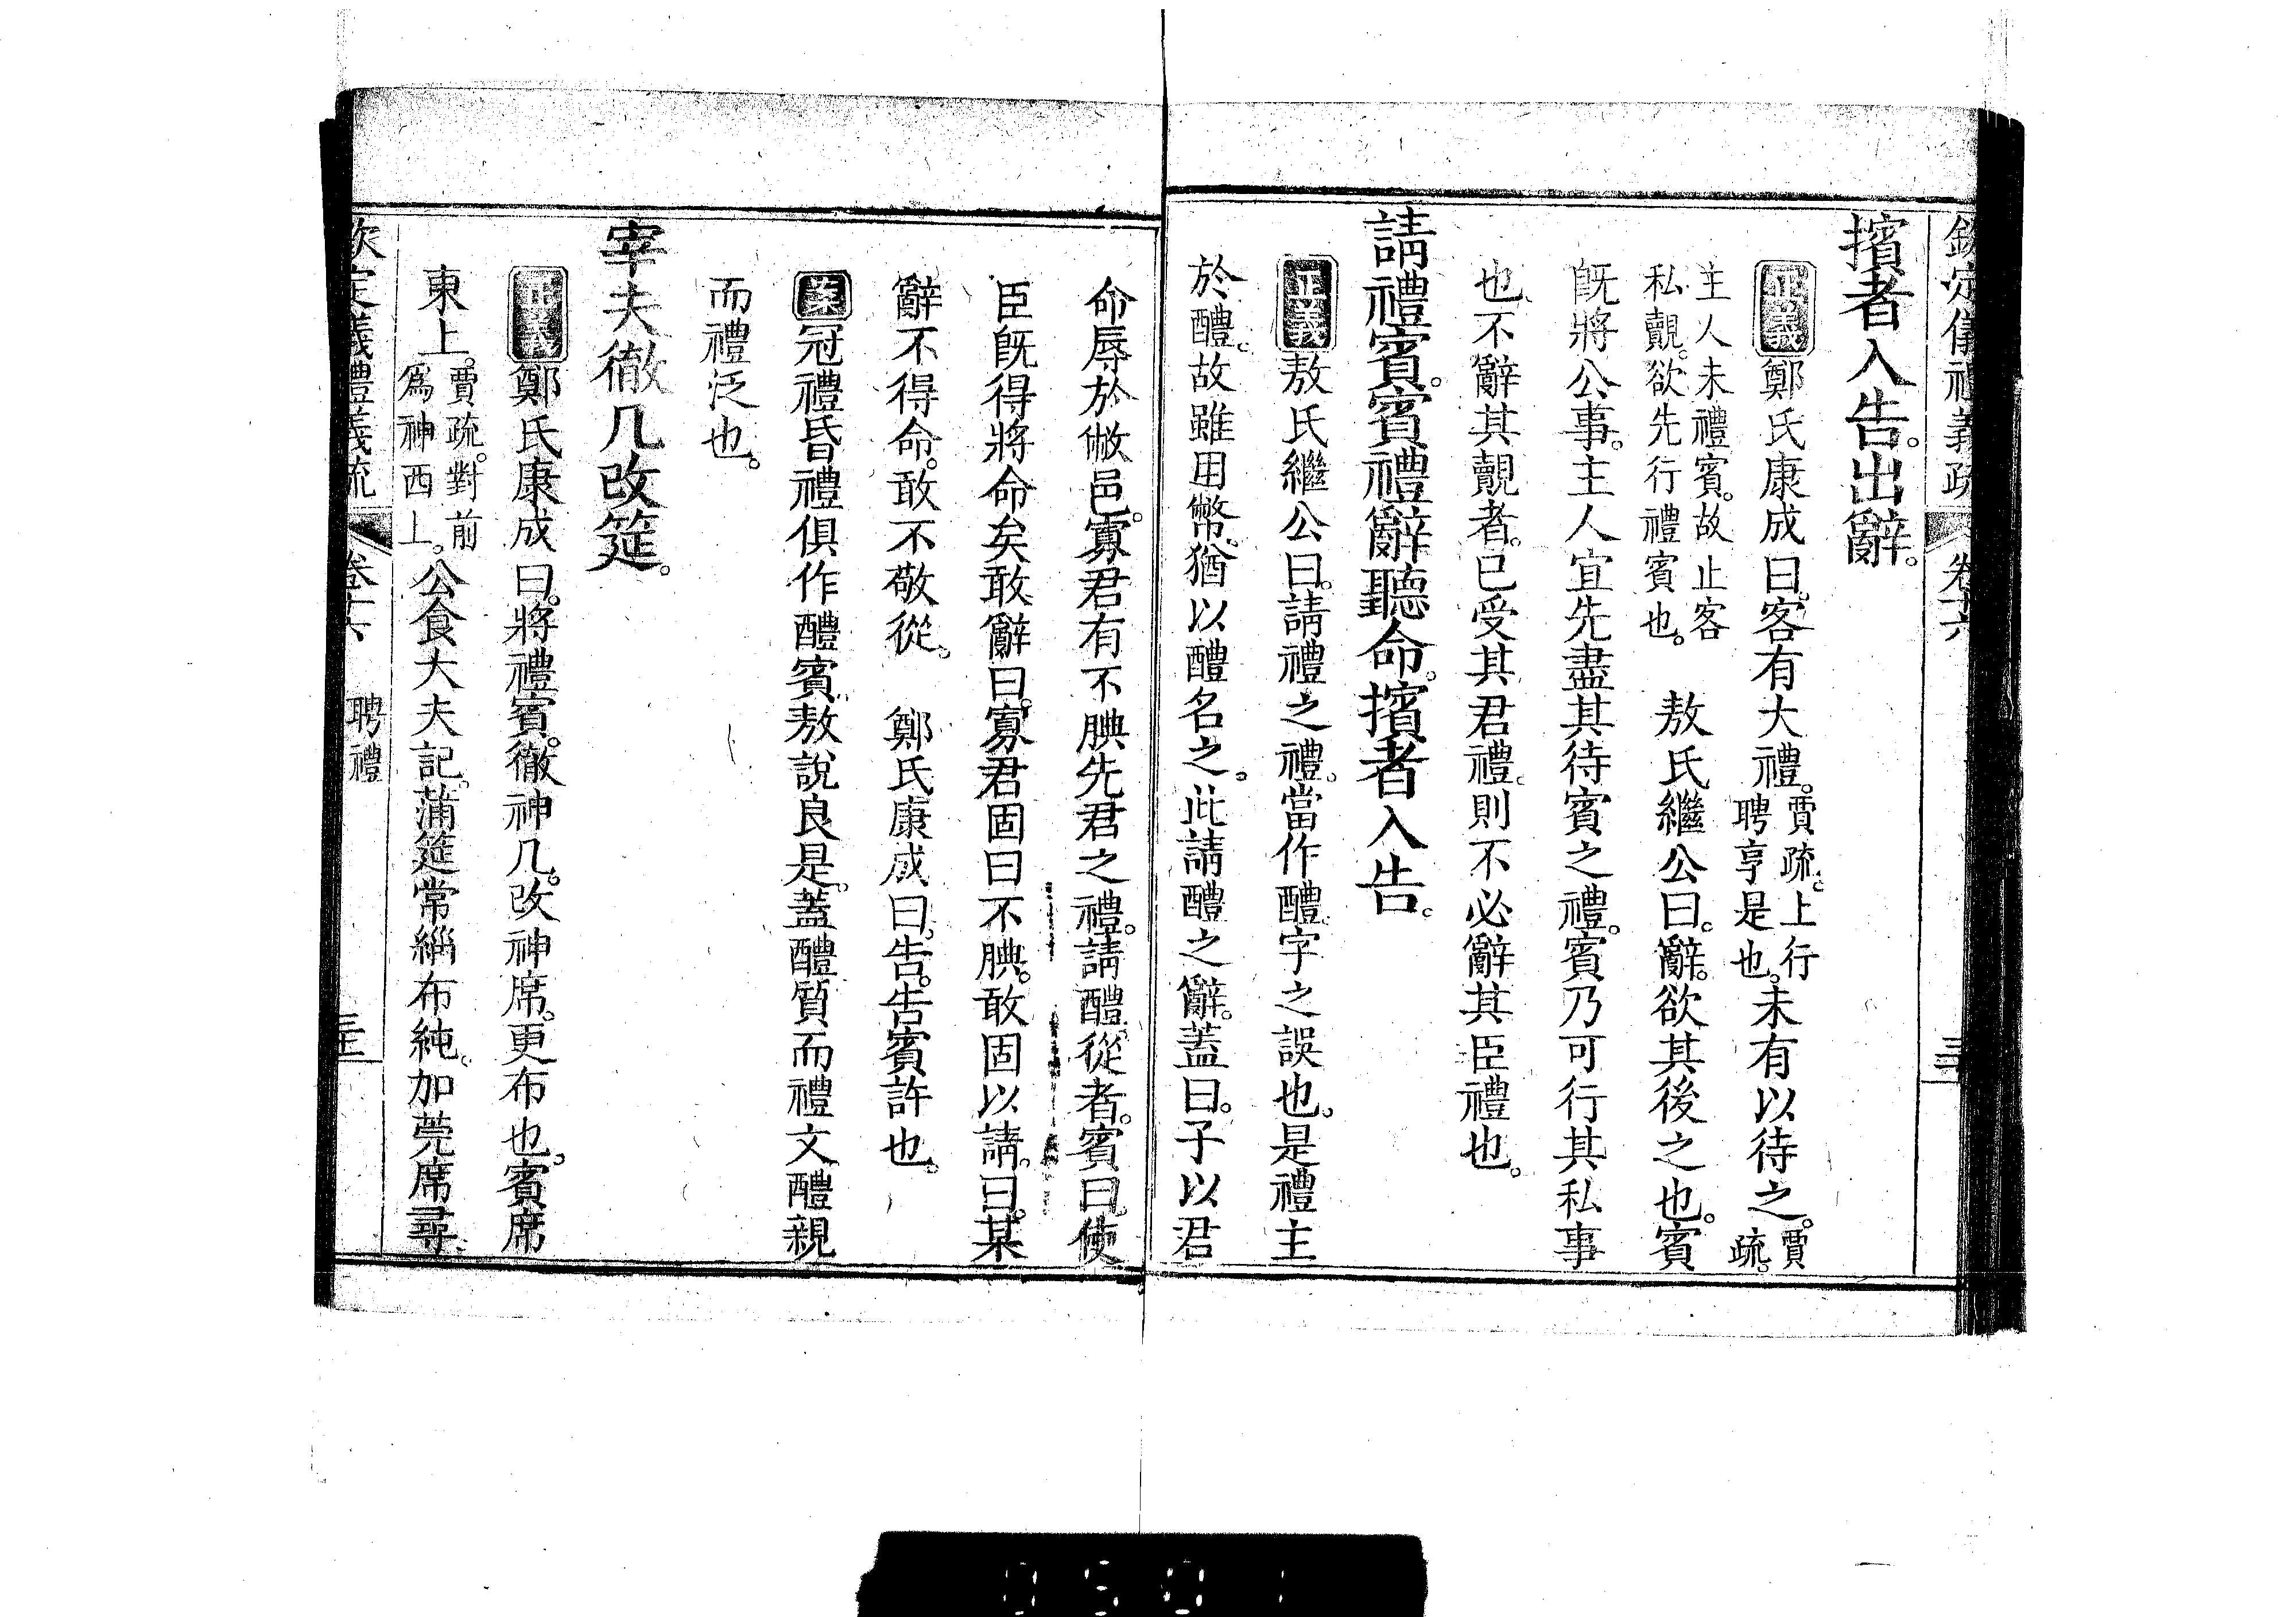 欽定儀禮義疏 卷十六
擯者入告。出辭。
正義鄭氏康成曰。客有大禮。賈疏。上行聘享是也。未有以待之。賈疏。
主人未禮賓。故止客私覿。欲先行禮賓也。 敖氏繼公曰。辭。欲其後之也。賓
旣將公事。主人宜先盡其待賓之禮。賓乃可行其私事
也。不辭其覿者。已受其君禮。則不必辭其臣禮也。
請禮賓。賓禮辭聽命。擯者入告。
正義敖氏繼公曰。請禮之禮。當作醴字之誤也。是禮主
於醴。故雖用幣。猶以醴名之。此請醴之辭。蓋曰。子以君
命辱於敝邑。寡君有不腆先君之禮。請醴從者。賓曰。使
臣旣得將命矣敢辭曰。寡君固曰不腆。敢固以請。曰。某
辭不得命。敢不敬從。 鄭氏康成曰。告。告賓許也。
案冠禮昏禮俱作醴賓。敖說良是。蓋醴質而禮文醴親
而禮泛也。
宰夫徹几改筵。
正義鄭氏康成曰。將禮賓。徹神几。改神席。更布也。賓席
東上。賈疏。對前爲神西上。公食大夫記。蒲筵常緇布純。加莞席尋。
欽定儀禮義疏 卷十六 聘禮